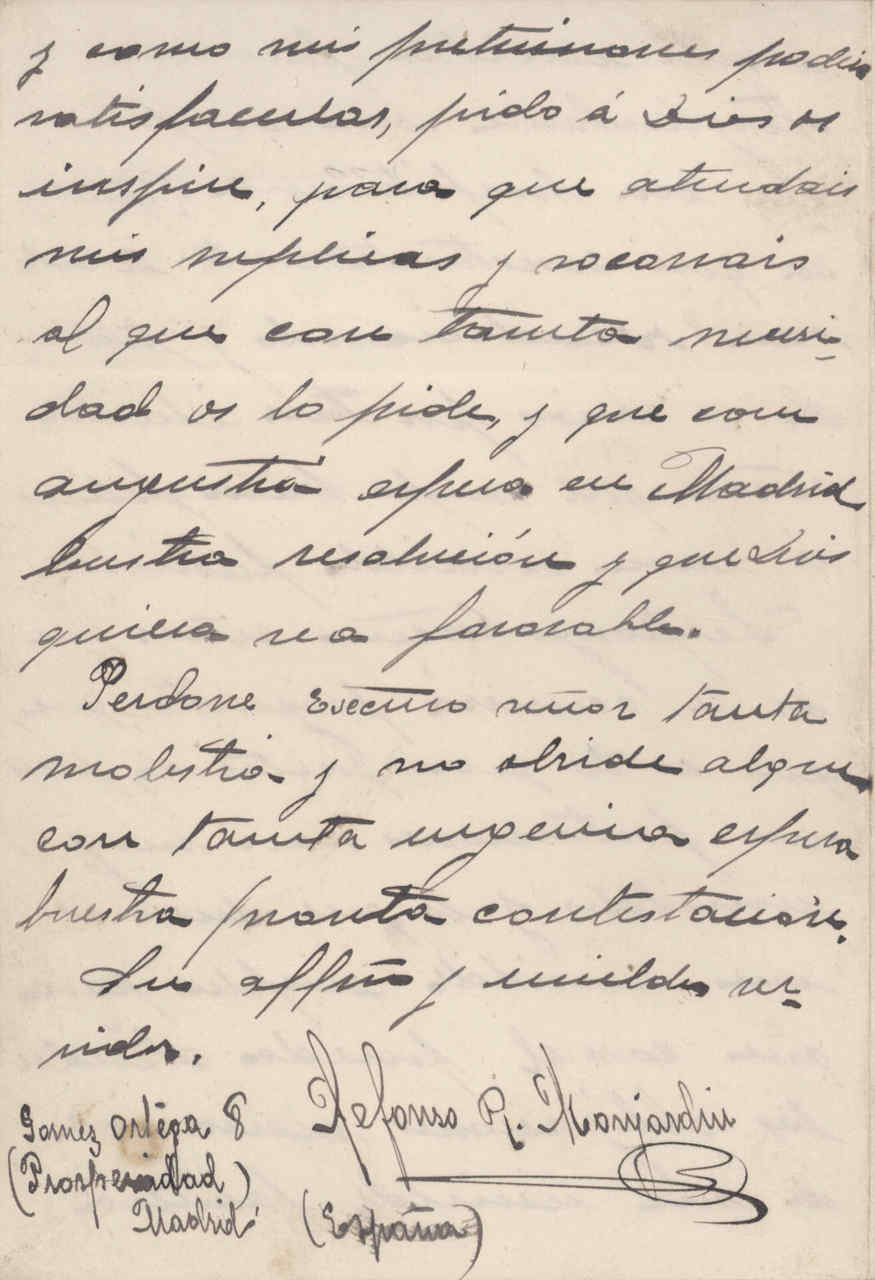 y como mis pretensiones podeis
satisfacerlas, pido á Dios os
inspire, para que atendais
mis suplicas y socorrais
al que con tanta necesi-
dad os lo pide, y que con
angustia espera en Madrid
buestra resolución y que Dios
quiera sea favorable.
Perdone Execmo señor tanta
molestia y no olvide al que
con tanta urgencia espera
buestra pronta contestacion.
Su affmo y umilde ser-
vidor.
Ildefonso R. Monjardin
Gomez Ortega 8
(Prosperidad)
Madrid
(España)